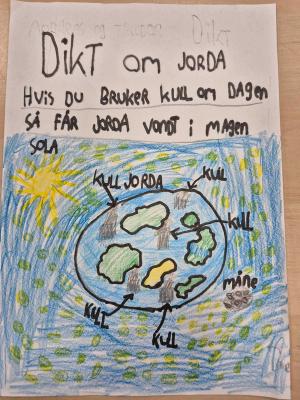 DIKT OM JORDA
HVIS DU BRUKER KULL OM DAGEN
SÅ FÅR JORDA VONDT I MAGEN
SOLA
KULL JORDA
KULL
KULL
måne
KULL
KULL